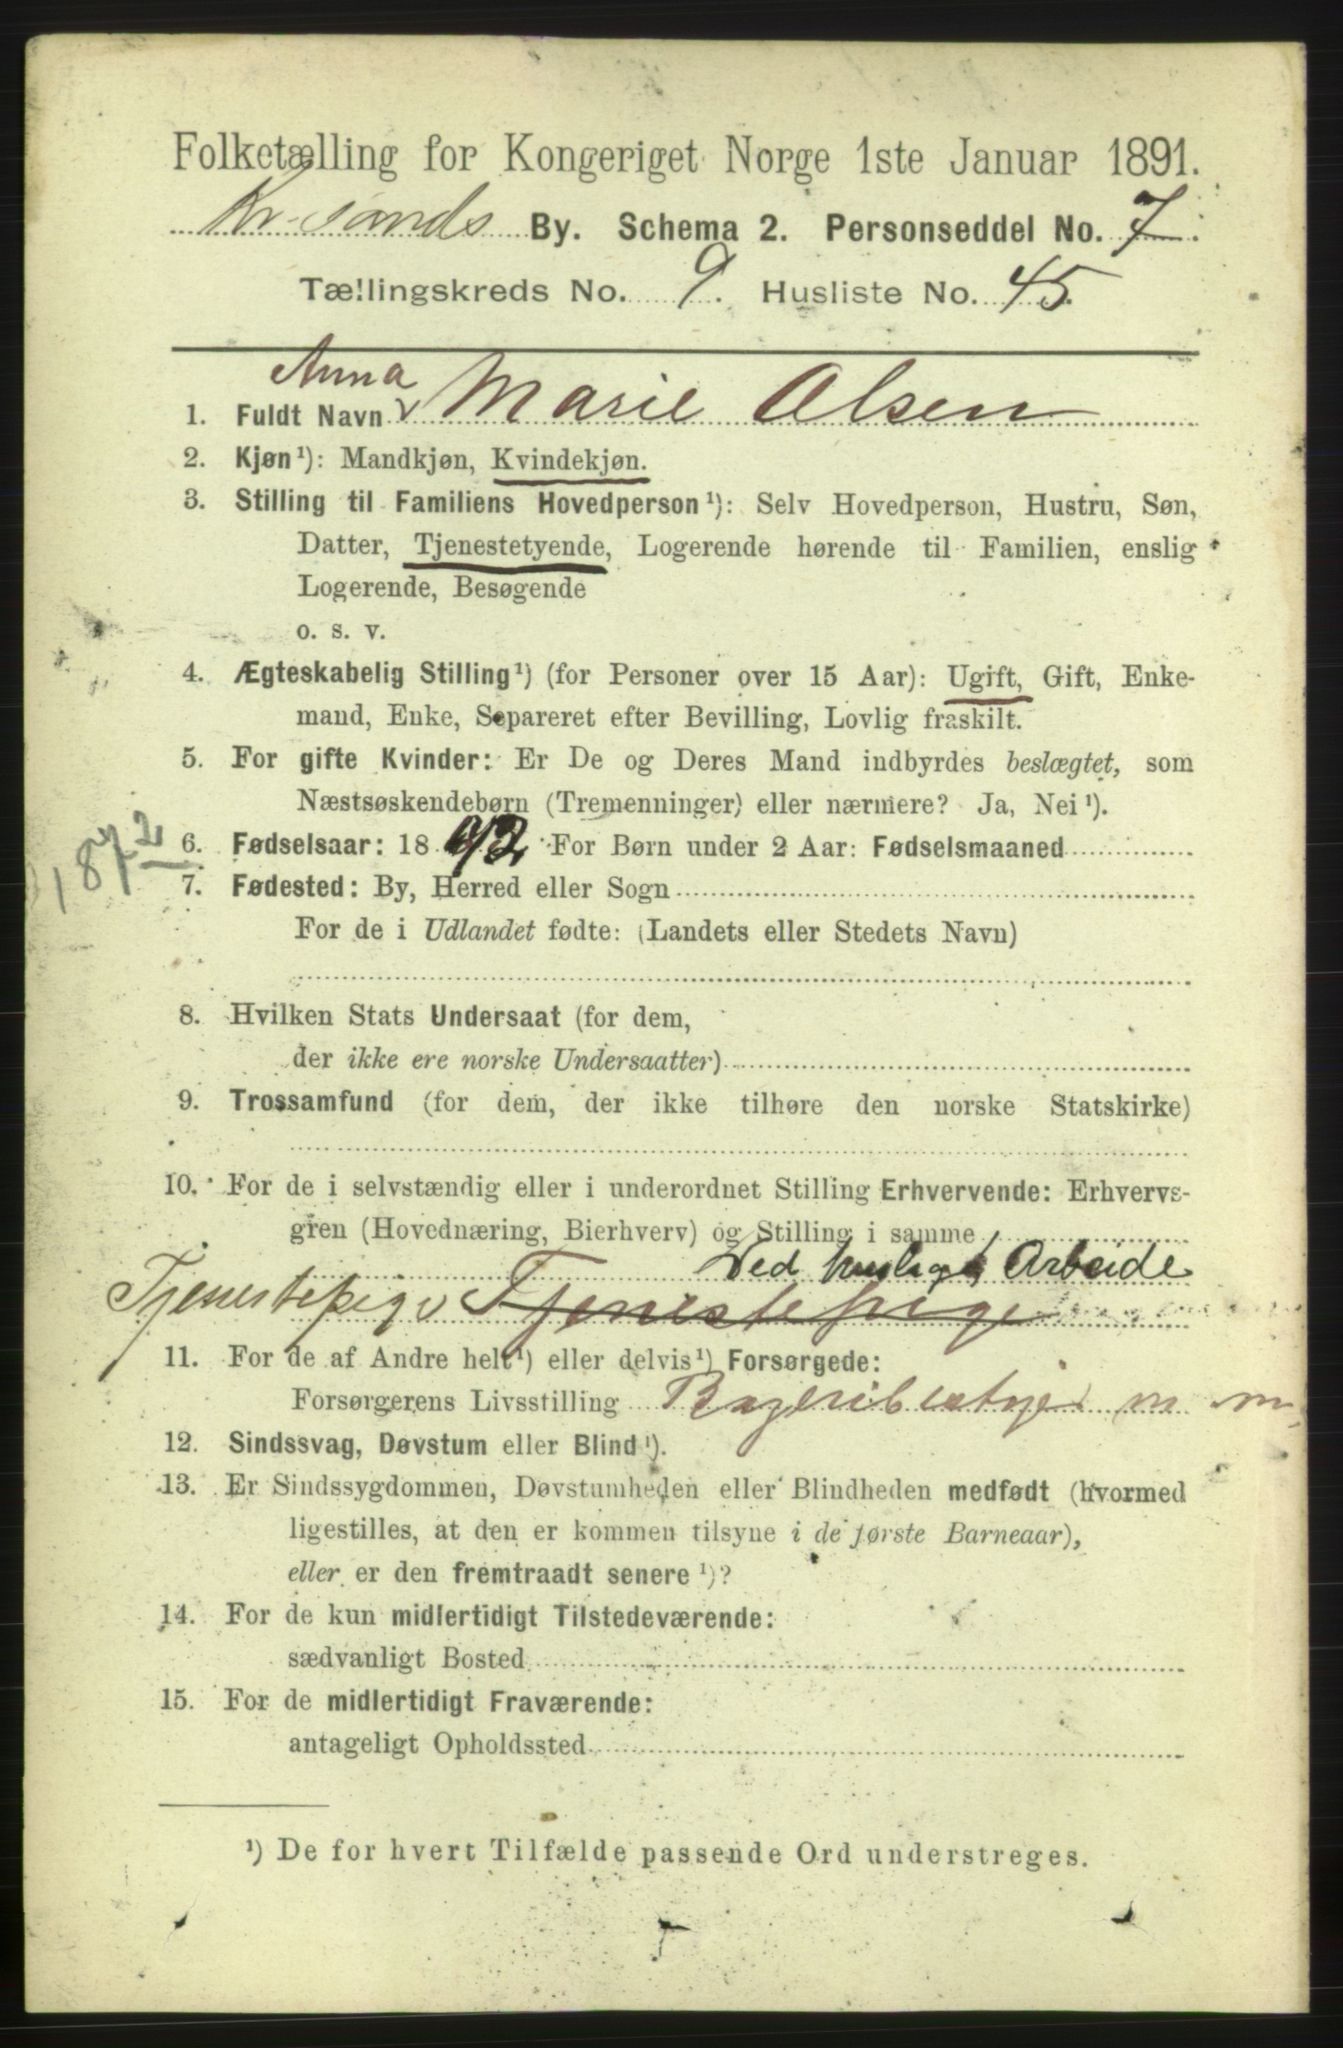 Folketælling for Kongeriget Norge 1ste Januar 1891.
Kr-sands By. Schema 2. Personseddel No. 7.
Tællingskreds No. 9. Husliste No. 45.
Anna
1. Fuldt Navn v Marie Olsen
2. Kjøn¹): Mandkjøn, Kvindekjøn.
3. Stilling til Familiens Hovedperson¹): Selv Hovedperson, Hustru, Søn,
Datter, Tjenestetyende, Logerende hørende til Familien, enslig
Logerende, Besøgende
o. s. v.
4. Ægteskabelig Stilling¹) (for Personer over 15 Aar): Ugift, Gift, Enke-
mand, Enke, Separeret efter Bevilling, Lovlig fraskilt.
5. For gifte Kvinder: Er De og Deres Mand indbyrdes beslægtet, som
Næstsøskendebørn (Tremenninger) eller nærmere? Ja, Nei¹).
1872
6. Fødselsaar: 18 72 For Børn under 2 Aar: Fødselsmaaned
7. Fødested: By, Herred eller Sogn
For de i Udlandet fødte: (Landets eller Stedets Navn)
8. Hvilken Stats Undersaat (for dem,
der ikke ere norske Undersaatter)
9. Trossamfund (for dem, der ikke tilhøre den norske Statskirke)
10. For de i selvstændig eller i underordnet Stilling Erhvervende: Erhvervs-
gren (Hovednæring, Bierhverv) og Stilling i samme
Ved husligt Arbeide
Tjenestepige Tjenestepige
11. For de af Andre helt¹) eller delvis¹) Forsørgede:
Forsørgerens Livsstilling m m
12. Sindssvag, Døvstum eller Blind¹).
13. Er Sindssygdommen, Døvstumheden eller Blindheden medfødt (hvormed
ligestilles, at den er kommen tilsyne i de første Barneaar),
eller er den fremtraadt senere¹)?
14. For de kun midlertidigt Tilstedeværende:
sædvanligt Bosted
15. For de midlertidigt Fraværende:
antageligt Opholdssted
¹) De for hvert Tilfælde passende Ord understreges.